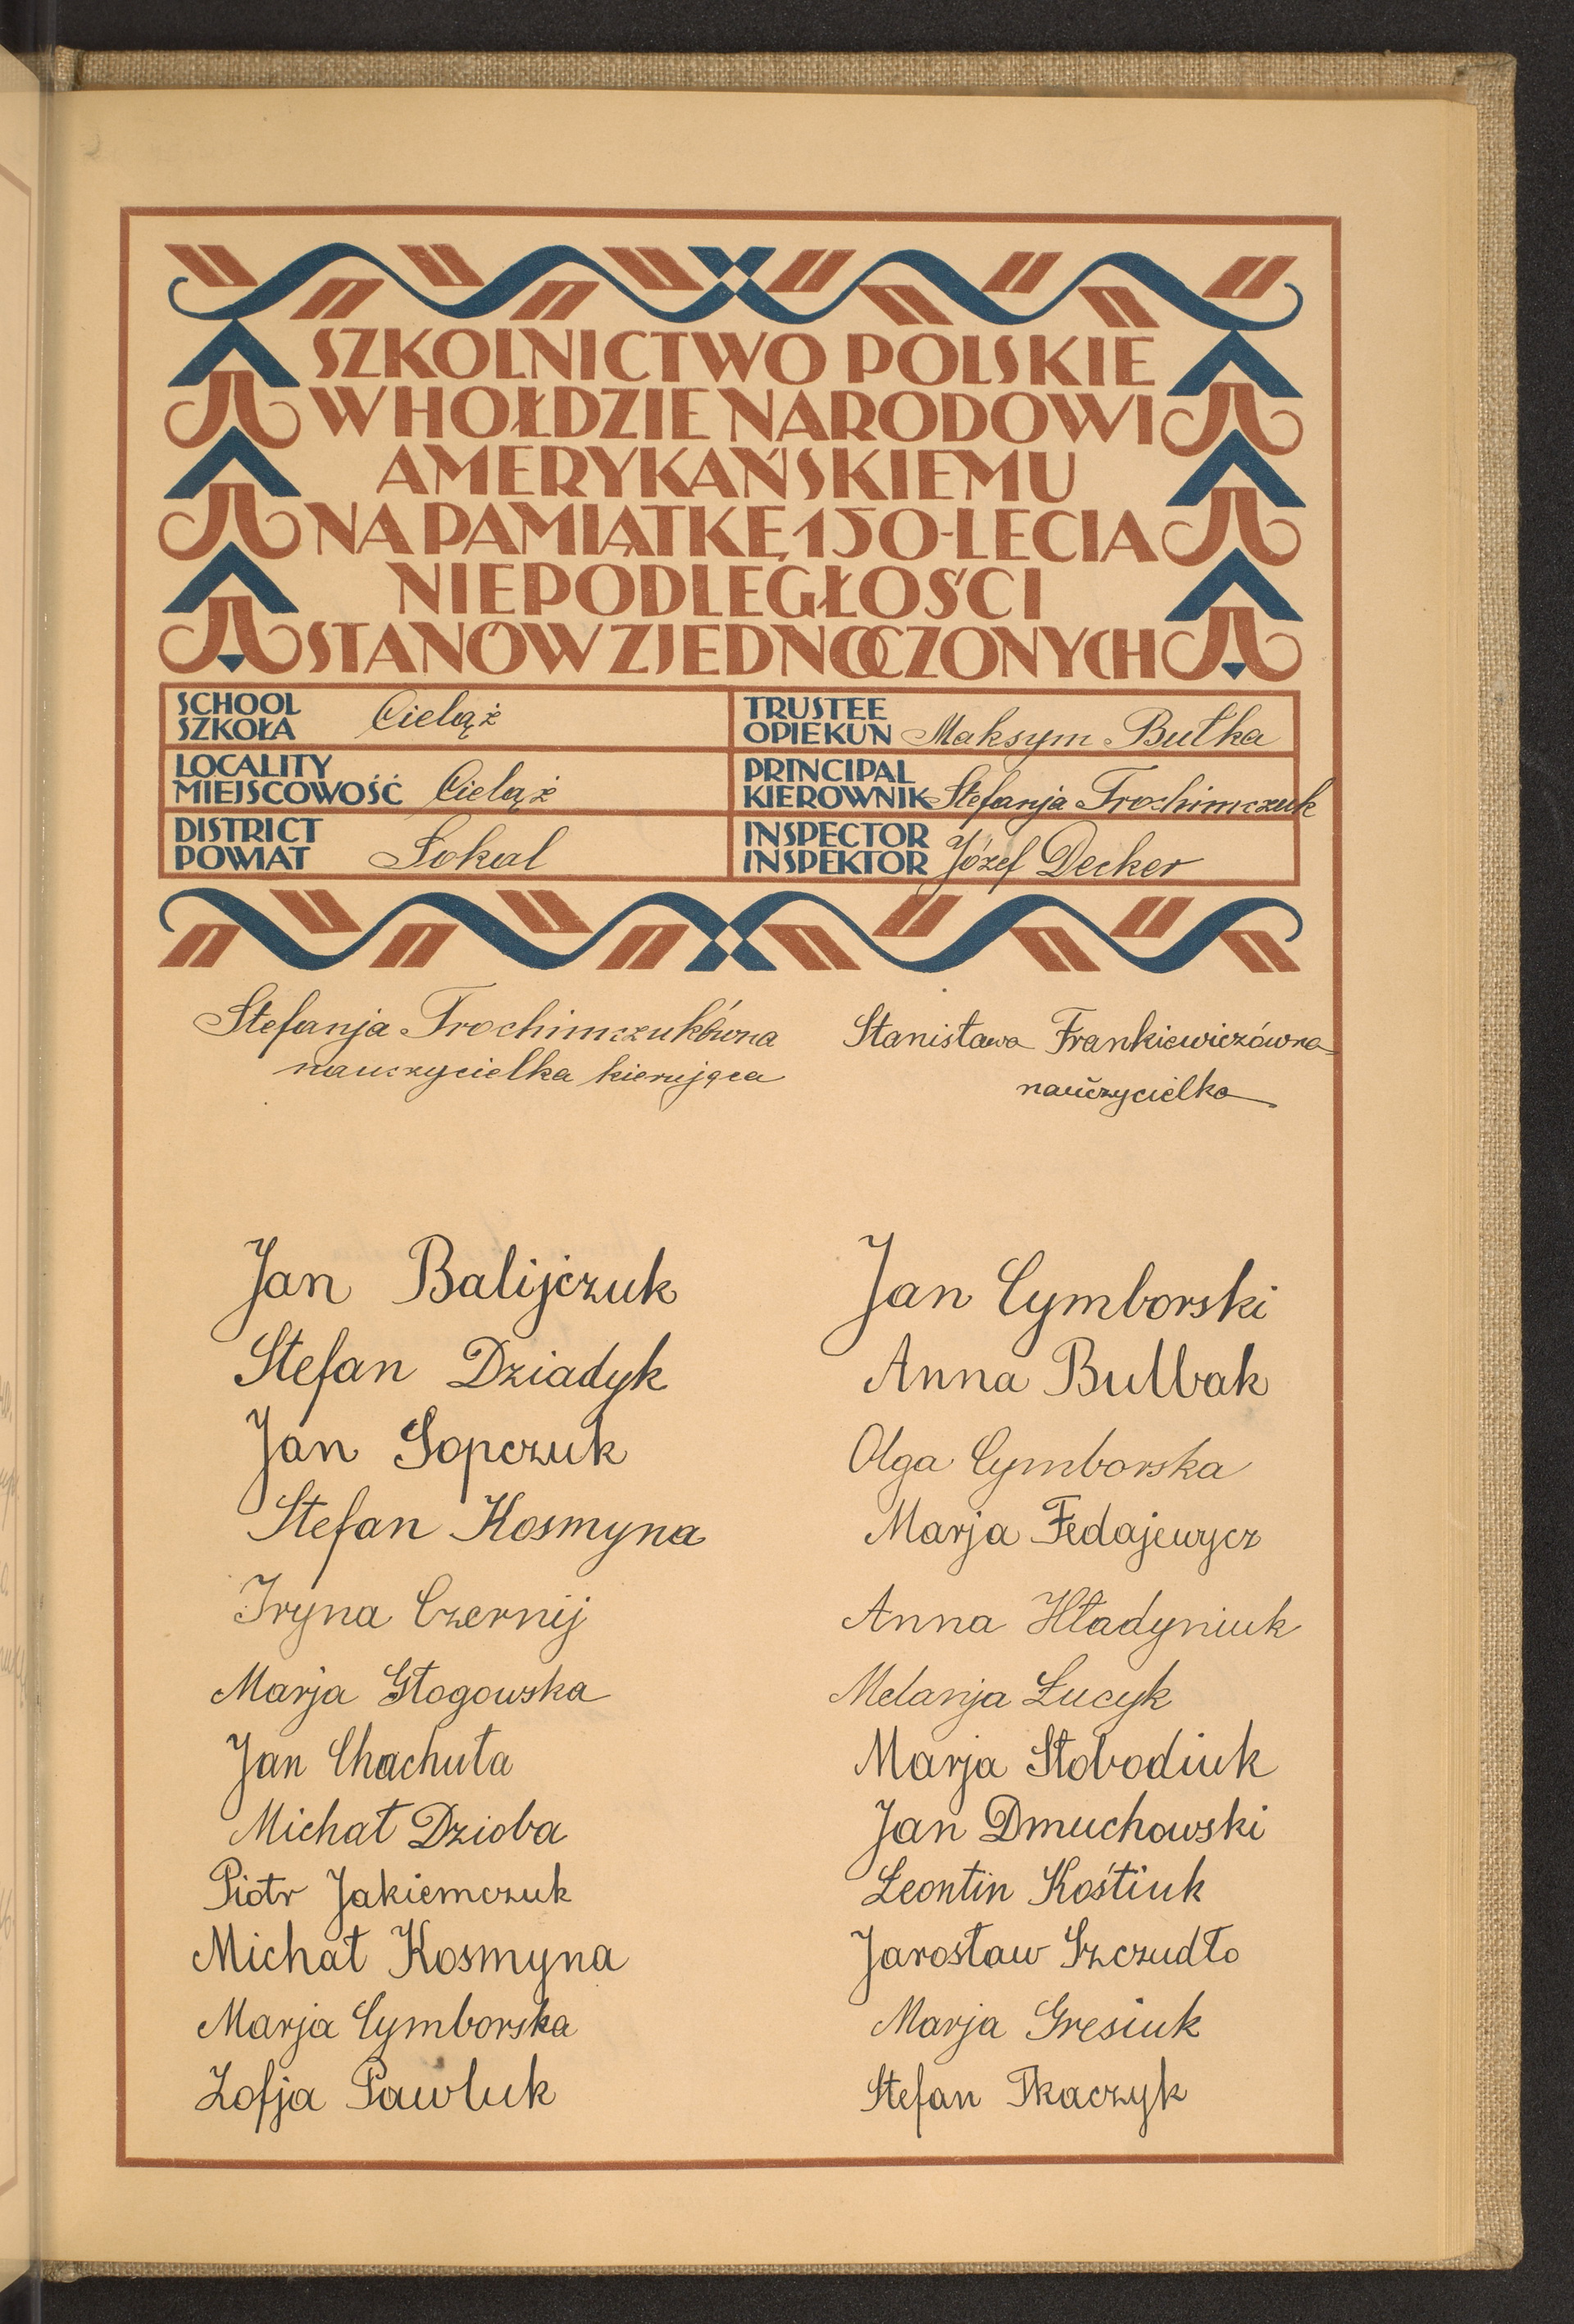 SZKOLNICTWO POLSKIE
W HOŁDZIE NARODOWI
AMERYKAŃSKIEMU
NA PAMIĄTKĘ 150-LECIA
NIEPODLEGŁOŚCI
STANÓW ZJEDNOCZONYCH
SCHOOL
SZKOŁA Cieląż
TRUSTEE
OPIEKUN Maksym Bułka
LOCALITY
MIEJSCOWOŚĆ Cieląż
PRINCIPAL
KIEROWNIK Stefanja Trochimczuk
DISTRICT
POWIAT Sokal
INSPECTOR
INSPEKTOR Józef Decker
Stefanja Trochimczukówna
nauczycielka kierująca
Stanisława Frankiewiczówna
nauczycielka
Jan Balijczuk
Stefan Dziadyk
Jan Sopczuk
Stefan Kosmyna
Iryna Czernij
Marja Głogowska
Jan Chachuła
Michał Dzioba
Piotr Jakiemczuk
Michał Kosmyna
Marja Cymborska
Zofja Pawluk
Jan Cymborski
Anna Bulbak
Olga Cymborska
Marja Fedajewycz
Anna Hładyniuk
Melanja Łucyk
Marja Słobodiuk
Jan Dmuchowski
Leontin Kośtiuk
Jarosław Szczudło
Marja Gresiuk
Stefan Tkaczyk